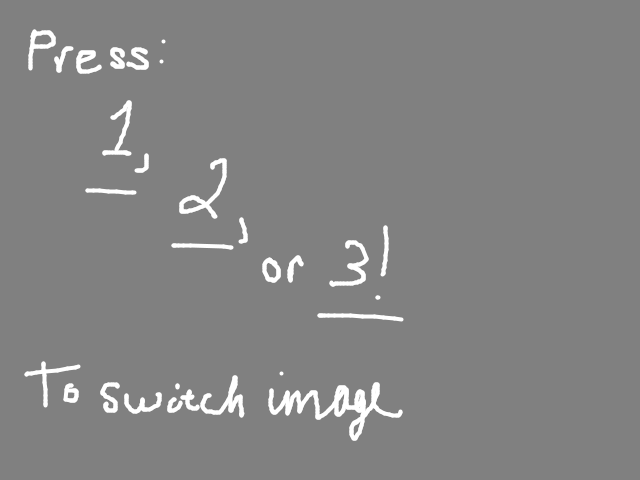 Press:
1,
2,
or 3!
To switch image